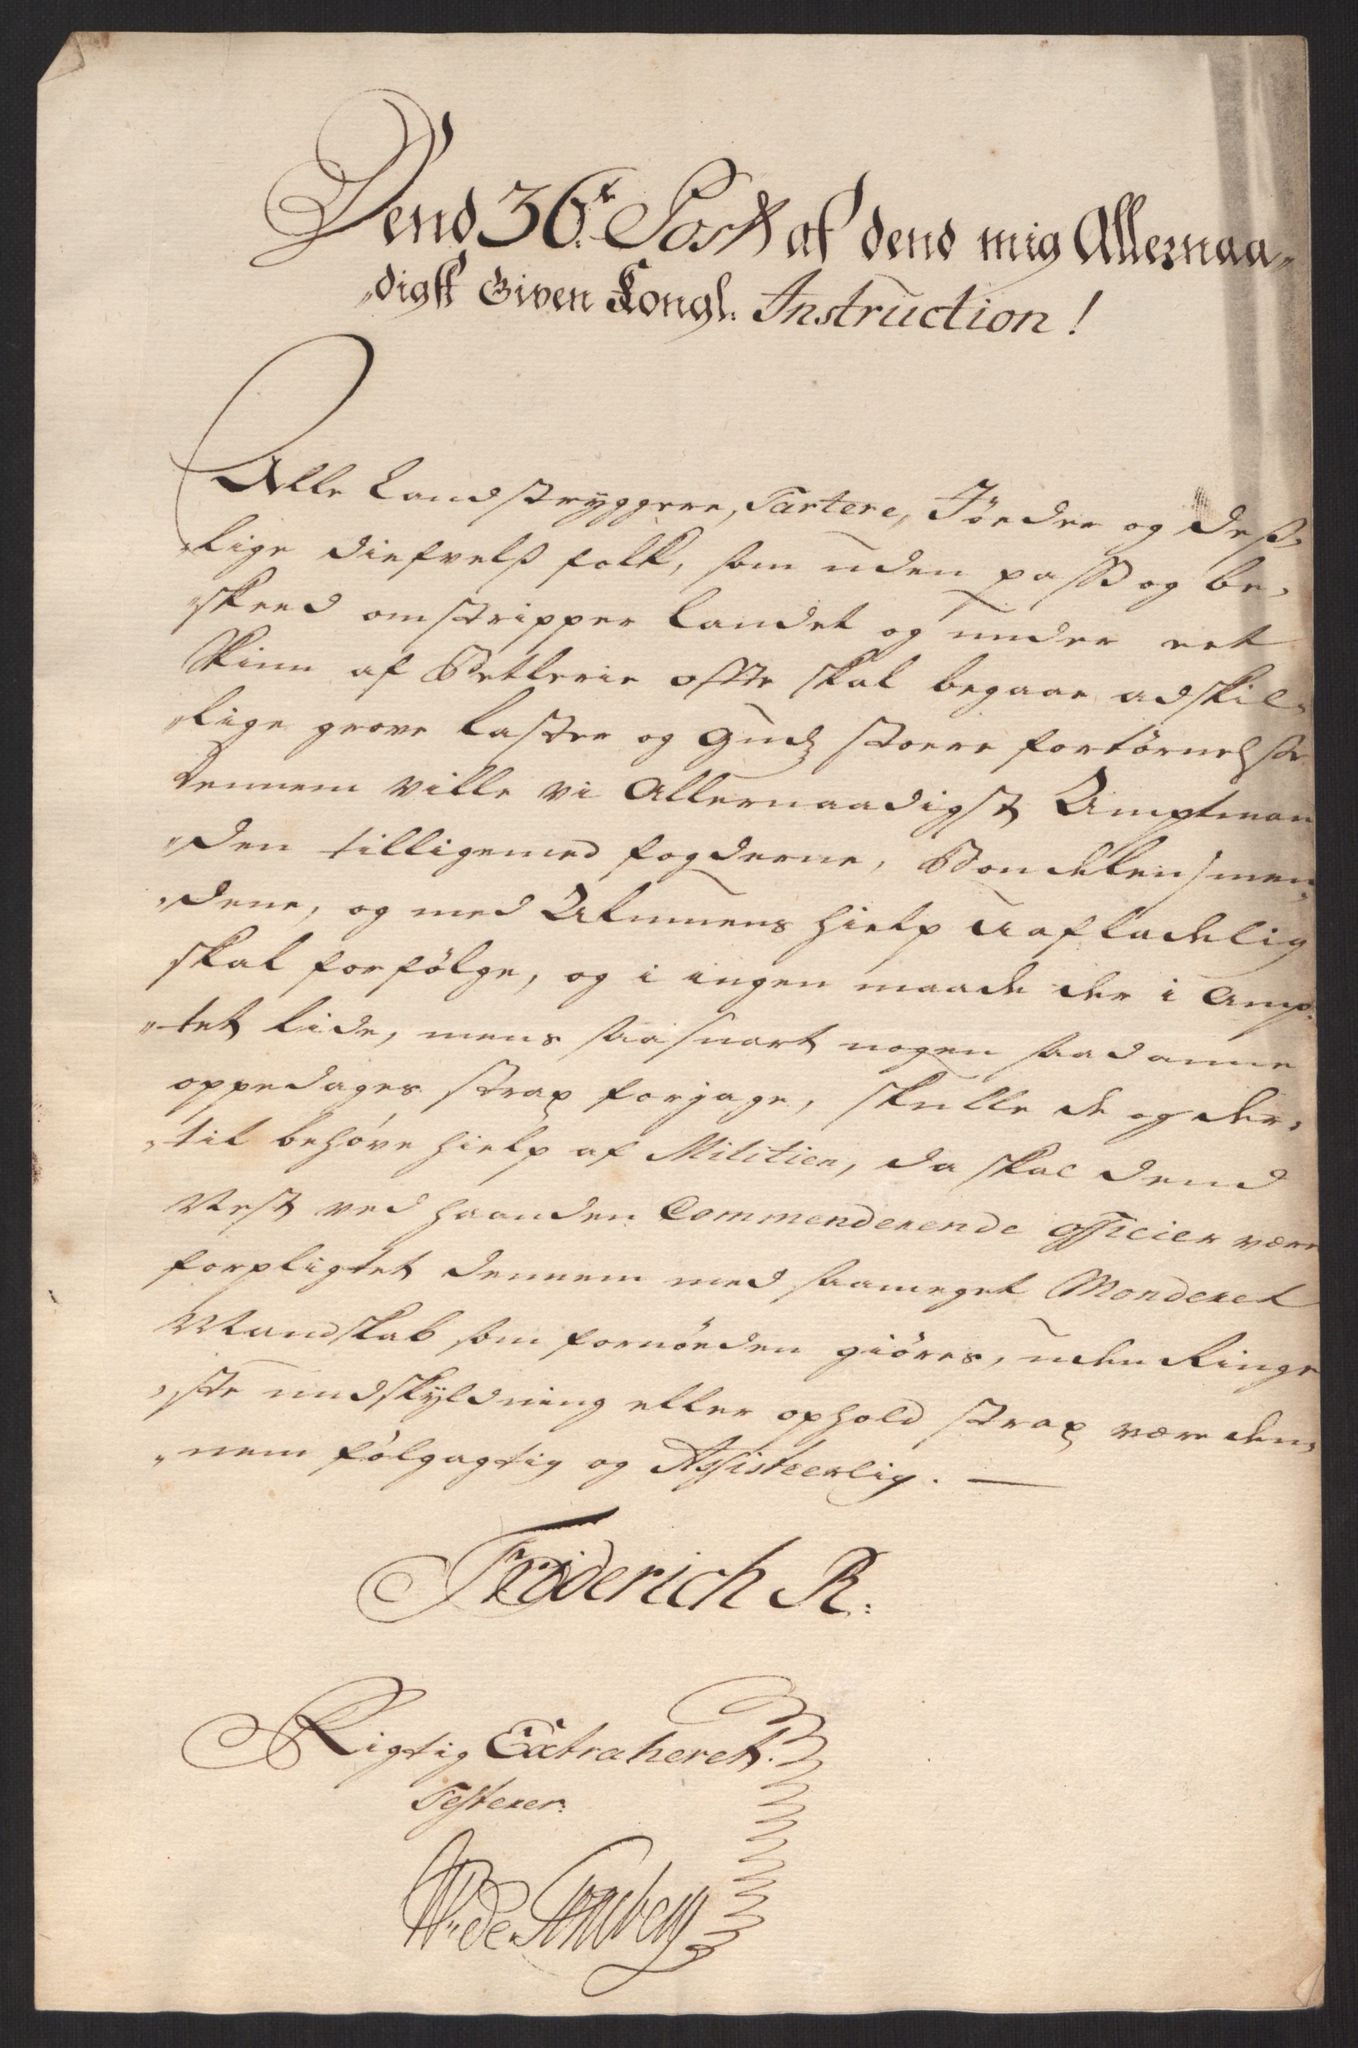 Dend 36te Post af dend mig Allernaa„
„digst Given Kongl. Instruction!
Alle Landstryggere, Tartere, Jöeder og dess„
„lige diefvelß folk, som uden pass og be„
„skeed omstripper Landet og under eet
Skinn af Betlerie offte skal begaae adskil„
„lige grove Laster og Gudz stoere fortörnelse
dennem ville vi Allernaadigst Amptman
„den tilligemed fogderne, Bondelensmen„
„dene, og med Almuens hielp uafladelig
skal forfölge, og i ingen maade der i Amp„
„tet lide, mens saasnart nogen saadanne
oppedages strax forjage, skulle de og der„
„til behöve hielp af Militien, da skal dend
Nest ved haanden Commenderende officier være
forpligtet dennem med saameget Monderet
Mandskab som fornöeden giöres, uden Ringe
„ste undskyldning eller ophold strax være den„
„nem fölgagtig og Assisteerlig. —
Friderich R.
Rigtig Extraheret.
Testerer.
W. de Tonsberg